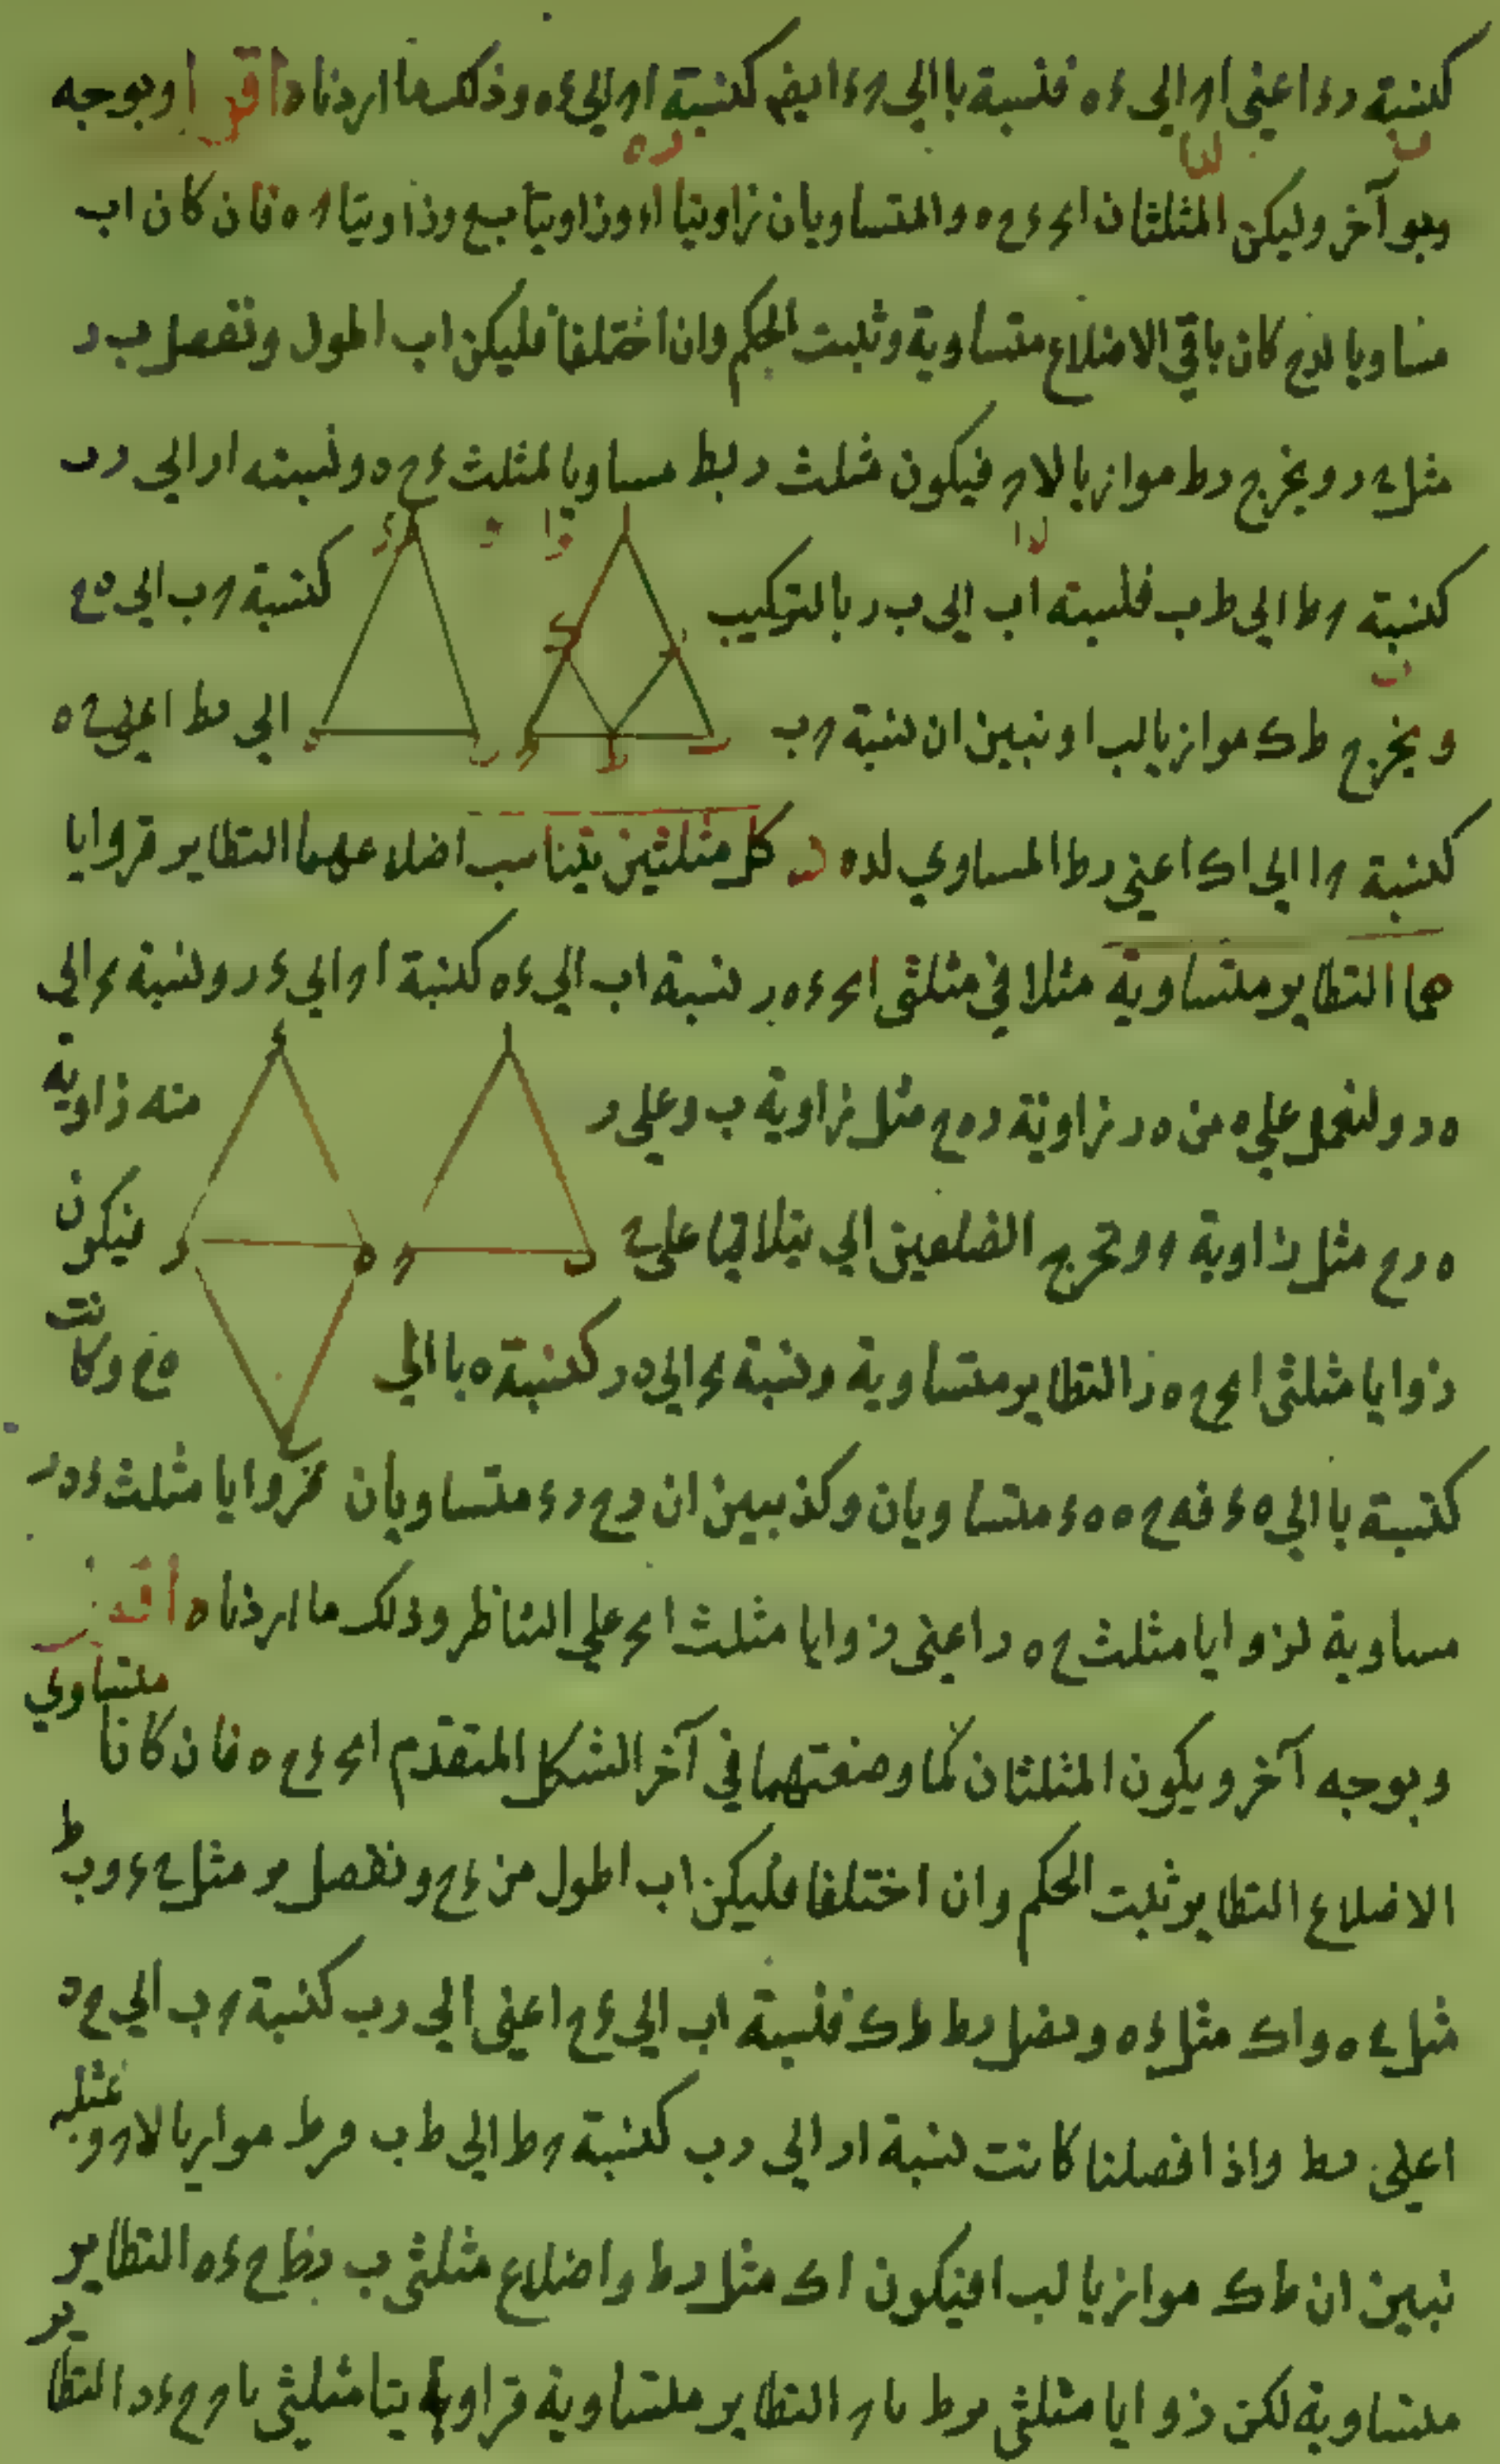 كنسبة رء اعني اح الي ءه فنسبة با الي حء ايضا كنسبة اح الي ءه وذلك ما اردناه اقول وبوجه
وبو آخر وليكن المثلثان ابح ءح ه والمتساويان زاويتا اء وزاويتا ب ح وزاويتا ح ه فان كان اب
مساويا لدح كان باقي الاضلاع متساوية وثبت الحكم وان اختلفا فليكن اب اطول ونفصل ب ر
مثل ح ر ويخرج رط موازيا لاح فيكون مثلث ر بط مساويا لمثلث ءح ه ونسبته ار الي رب
كنسبة حط الي ط ب فنسبته اب الي ب ر بالتركيب كنسبة ح ب الي ه ح
ويخرج ط ك موازيا لب ا ونبين ان نسبة ح ب الي بط اعني ح ه
كنسبة ح ا الي اك اعني رط المساوي لده ر كل مثلثين يتناسب اضلاعهما النظاير فزوايا
هما النظاير متساوية مثلا في مثلثي ابح ءه ر نسبة اب الي ءه كنسبة اح الي ء ر ونسبة بح الي
ه ر ولنعمل علي ه من ه ر زاوية ره ح مثل زاوية ب وعلي ر منه زاوية
ه رح مثل زاوية ح ونخرج الضلعين الي يتلاقيا علي ح فيكون
زوايا مثلثي ابح ح ه ر النظاير متساوية ونسبة بح الي ه ر كنسبة ه با الي ه ح وكانت
كنسبة با الي ه ء فه ح ه ه ء متساويان وكذ نبين ان رح رء متساويان فزوايا مثلث ءه ر
مساوية لزوايا مثلث ح ه ر اعني زوايا مثلث ابح علي التناظر وذلك ما اردناه اقول
وبوجه آخر ويكون المثلثان كما وضعتهما في آخر الشكل المتقدم ابح ءح ه فان كانا متساوي
الاضلاع النظاير ثبت الحكم وان اختلفا فليكن اب اطول من ءح ونفصل بر مثل ح ء وب ط
مثل ح ه واك مثل ءه ونصل رط ط ك فنسبة اب الي ءح اعني الي رب كنسبة ح ب الي ح ه
اعني بط واذا فصلنا كانت نسبة ار الي رب كنسبة حط الي ط ب فرط موازيا لاح وبمثله
نبين ان ط ك موازيا لب ا فيكون اك مثل رط واضلاع مثلثي ب رط ح ءه النظاير
متساوية لكن زوايا مثلثي برط باح النظاير متساوية فزوايا مثلثي باح حءه النظاير